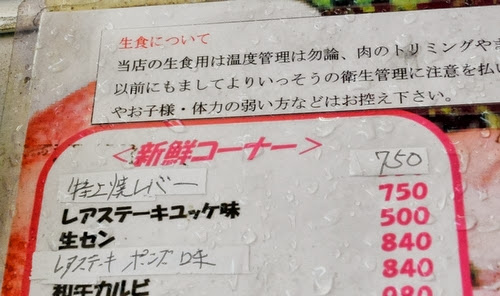 生食について
当店の生食用は温度管理は勿論、肉のトリミングや
以前にもましてよりいっそうの衛生管理に注意を払い
やお子様・体力の弱い方などはお控え下さい。
<新鮮コーナー>
750
特上焼レバー 750
レアステーキユッケ味 500
生セン 840
レアステーキ ポンズ味 840
和牛カルビ 980